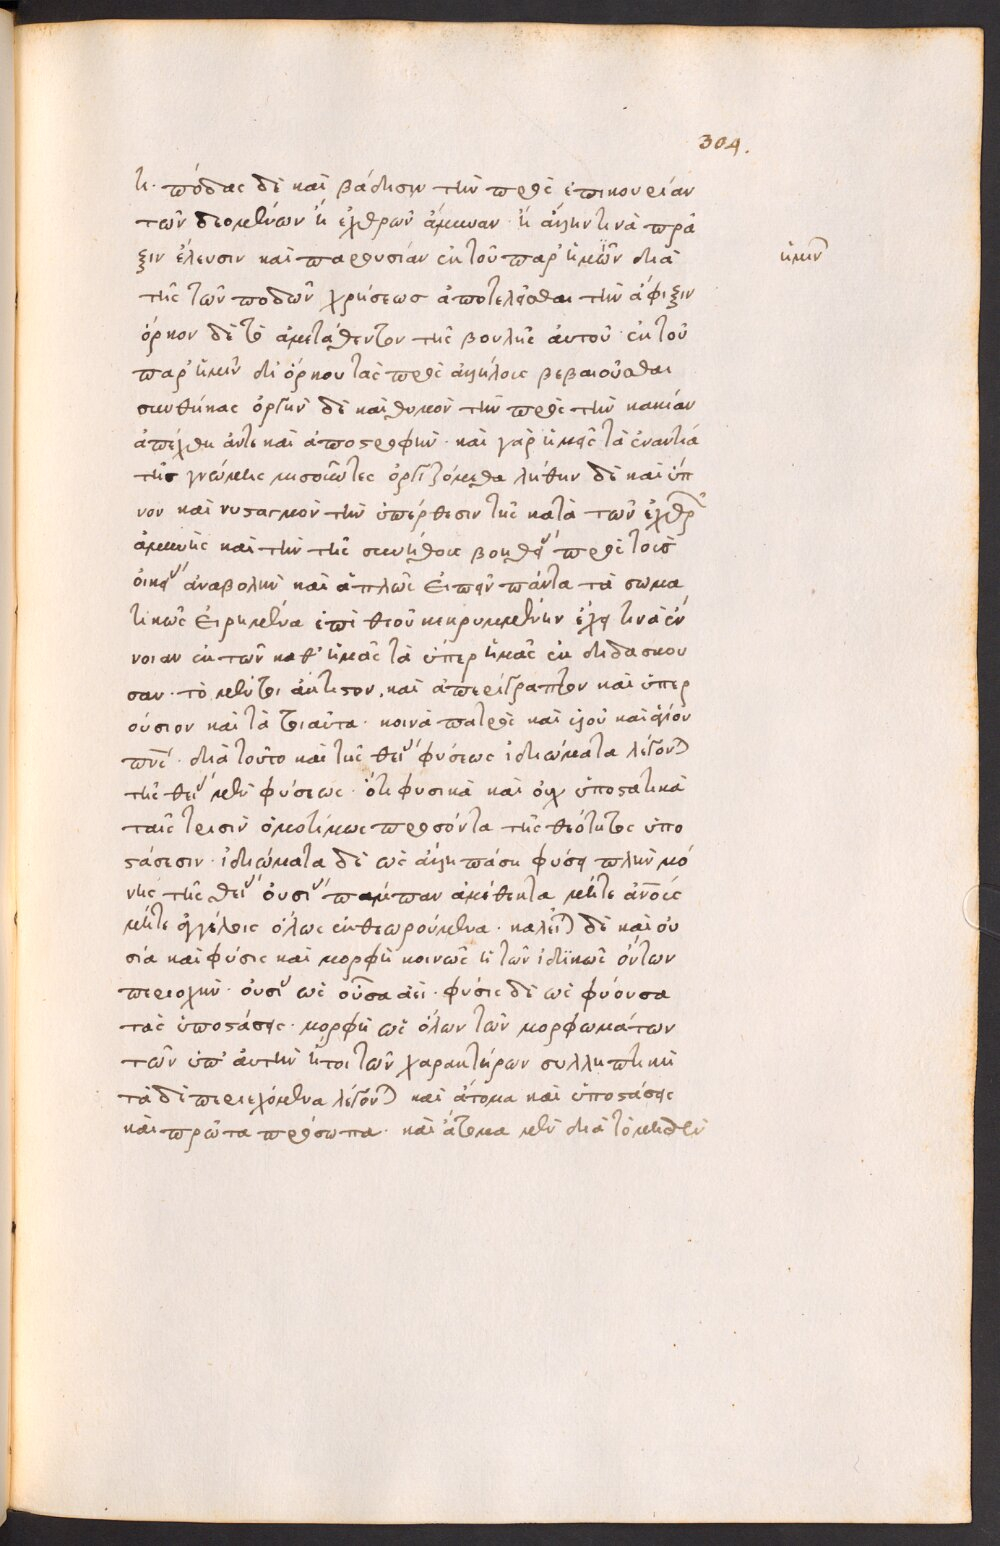 304.
τι· πόδας δὲ καὶ βάδισιν τὴν πρὸς ἐπικουρίαν
τῶν δεομένων ἢ ἐχθρῶν ἄμυναν· ἢ ἄλλην τινὰ πρᾶ
ξιν ἔλευσιν καὶ παρουσίαν ἐκ τοῦ παρ' ἡμῶν διὰ
ἡμῖν
τῆς τῶν ποδῶν χρήσεως ἀποτελεῖσθαι τὴν ἄφιξιν
ὅρκον δὲ τὸ ἀμετάθετον τῆς βουλῆς αὐτοῦ· ἐκ τοῦ
παρ' ἡμῖν δι' ὅρκου τὰς πρὸς ἀλλήλοις βεβαιοῦσθαι
συνθήκας ὀργὴν δὲ καὶ θυμὸν τὴν πρὸς τὴν κακίαν
ἀπέχθειάν τε καὶ ἀποστροφὴν· καὶ γὰρ ἡμεῖς τὰ ἐναντία
τῆς γνώμης μισοῦντες ὀργιζόμεθα λήθην δὲ καὶ ὕπ
νον καὶ νυσταγμὸν τὴν ὑπέρθεσιν τῆς κατὰ τῶν ἐχθρῶν
ἀμύνης καὶ τὴν τῆς συνήθους βοηθείας πρὸς τοὺς
οἰκείους ἀναβολὴν καὶ ἁπλῶς εἰπεῖν πάντα τὰ σωμα
τικῶς εἰρημένα ἐπὶ θεοῦ κεκρυμμένην ἔχει τινὰ ἔν
νοιαν ἐκ τῶν καθ' ἡμᾶς τὰ ὑπὲρ ἡμᾶς ἐκδιδάσκου
σαν· τὸ μέν τοι ἄκτιστον, καὶ ἀπερίγραπτον καὶ ὑπερ
ούσιον καὶ τὰ τοιαῦτα· κοινὰ πατρὸς καὶ υἱοῦ καὶ ἁγίου
πνς· διὰ τοῦτο καὶ τῆς θείας φύσεως ἰδιώματα λέγονται
τῆς θείας μὲν φύσεως· ὅτι φυσικὰ καὶ οὐχ ὑποστατικὰ
ταῖς τρισὶν ὁμοτίμως προσόντα τῆς θεότητος ὑπο
στάσεσιν· ἰδιώματα δὲ ὡς ἄλλῃ πάσῃ φύσει πλὴν μό
νης τῆς θείας οὐσίας πάμπαν ἀμέθεκτα μήτε ἀνοις
μήτε ἀγγέλοις ὅλως ἐνθεωρούμενα· καλεῖται δὲ καὶ οὐ
σία καὶ φύσις καὶ μορφὴ κοινῶς ἡ τῶν ἰδικῶς ὄντων
περιοχὴν· οὐσία ὡς οὖσα ἀεὶ· φύσις δὲ ὡς φύουσα
τὰς ὑποστάσεις· μορφὴ ὡς ὅλων τῶν μορφωμάτων
τῶν ὑπ' αὐτὴν ἤτοι τῶν χαρακτήρων συλληπτικὴ
τὰ δὲ περιεχόμενα λέγονται καὶ ἄτομα καὶ ὑποστάσεις
καὶ πρῶτα πρόσωπα· καὶ ἄτομα μὲν διὰ τὸ μηδὲν